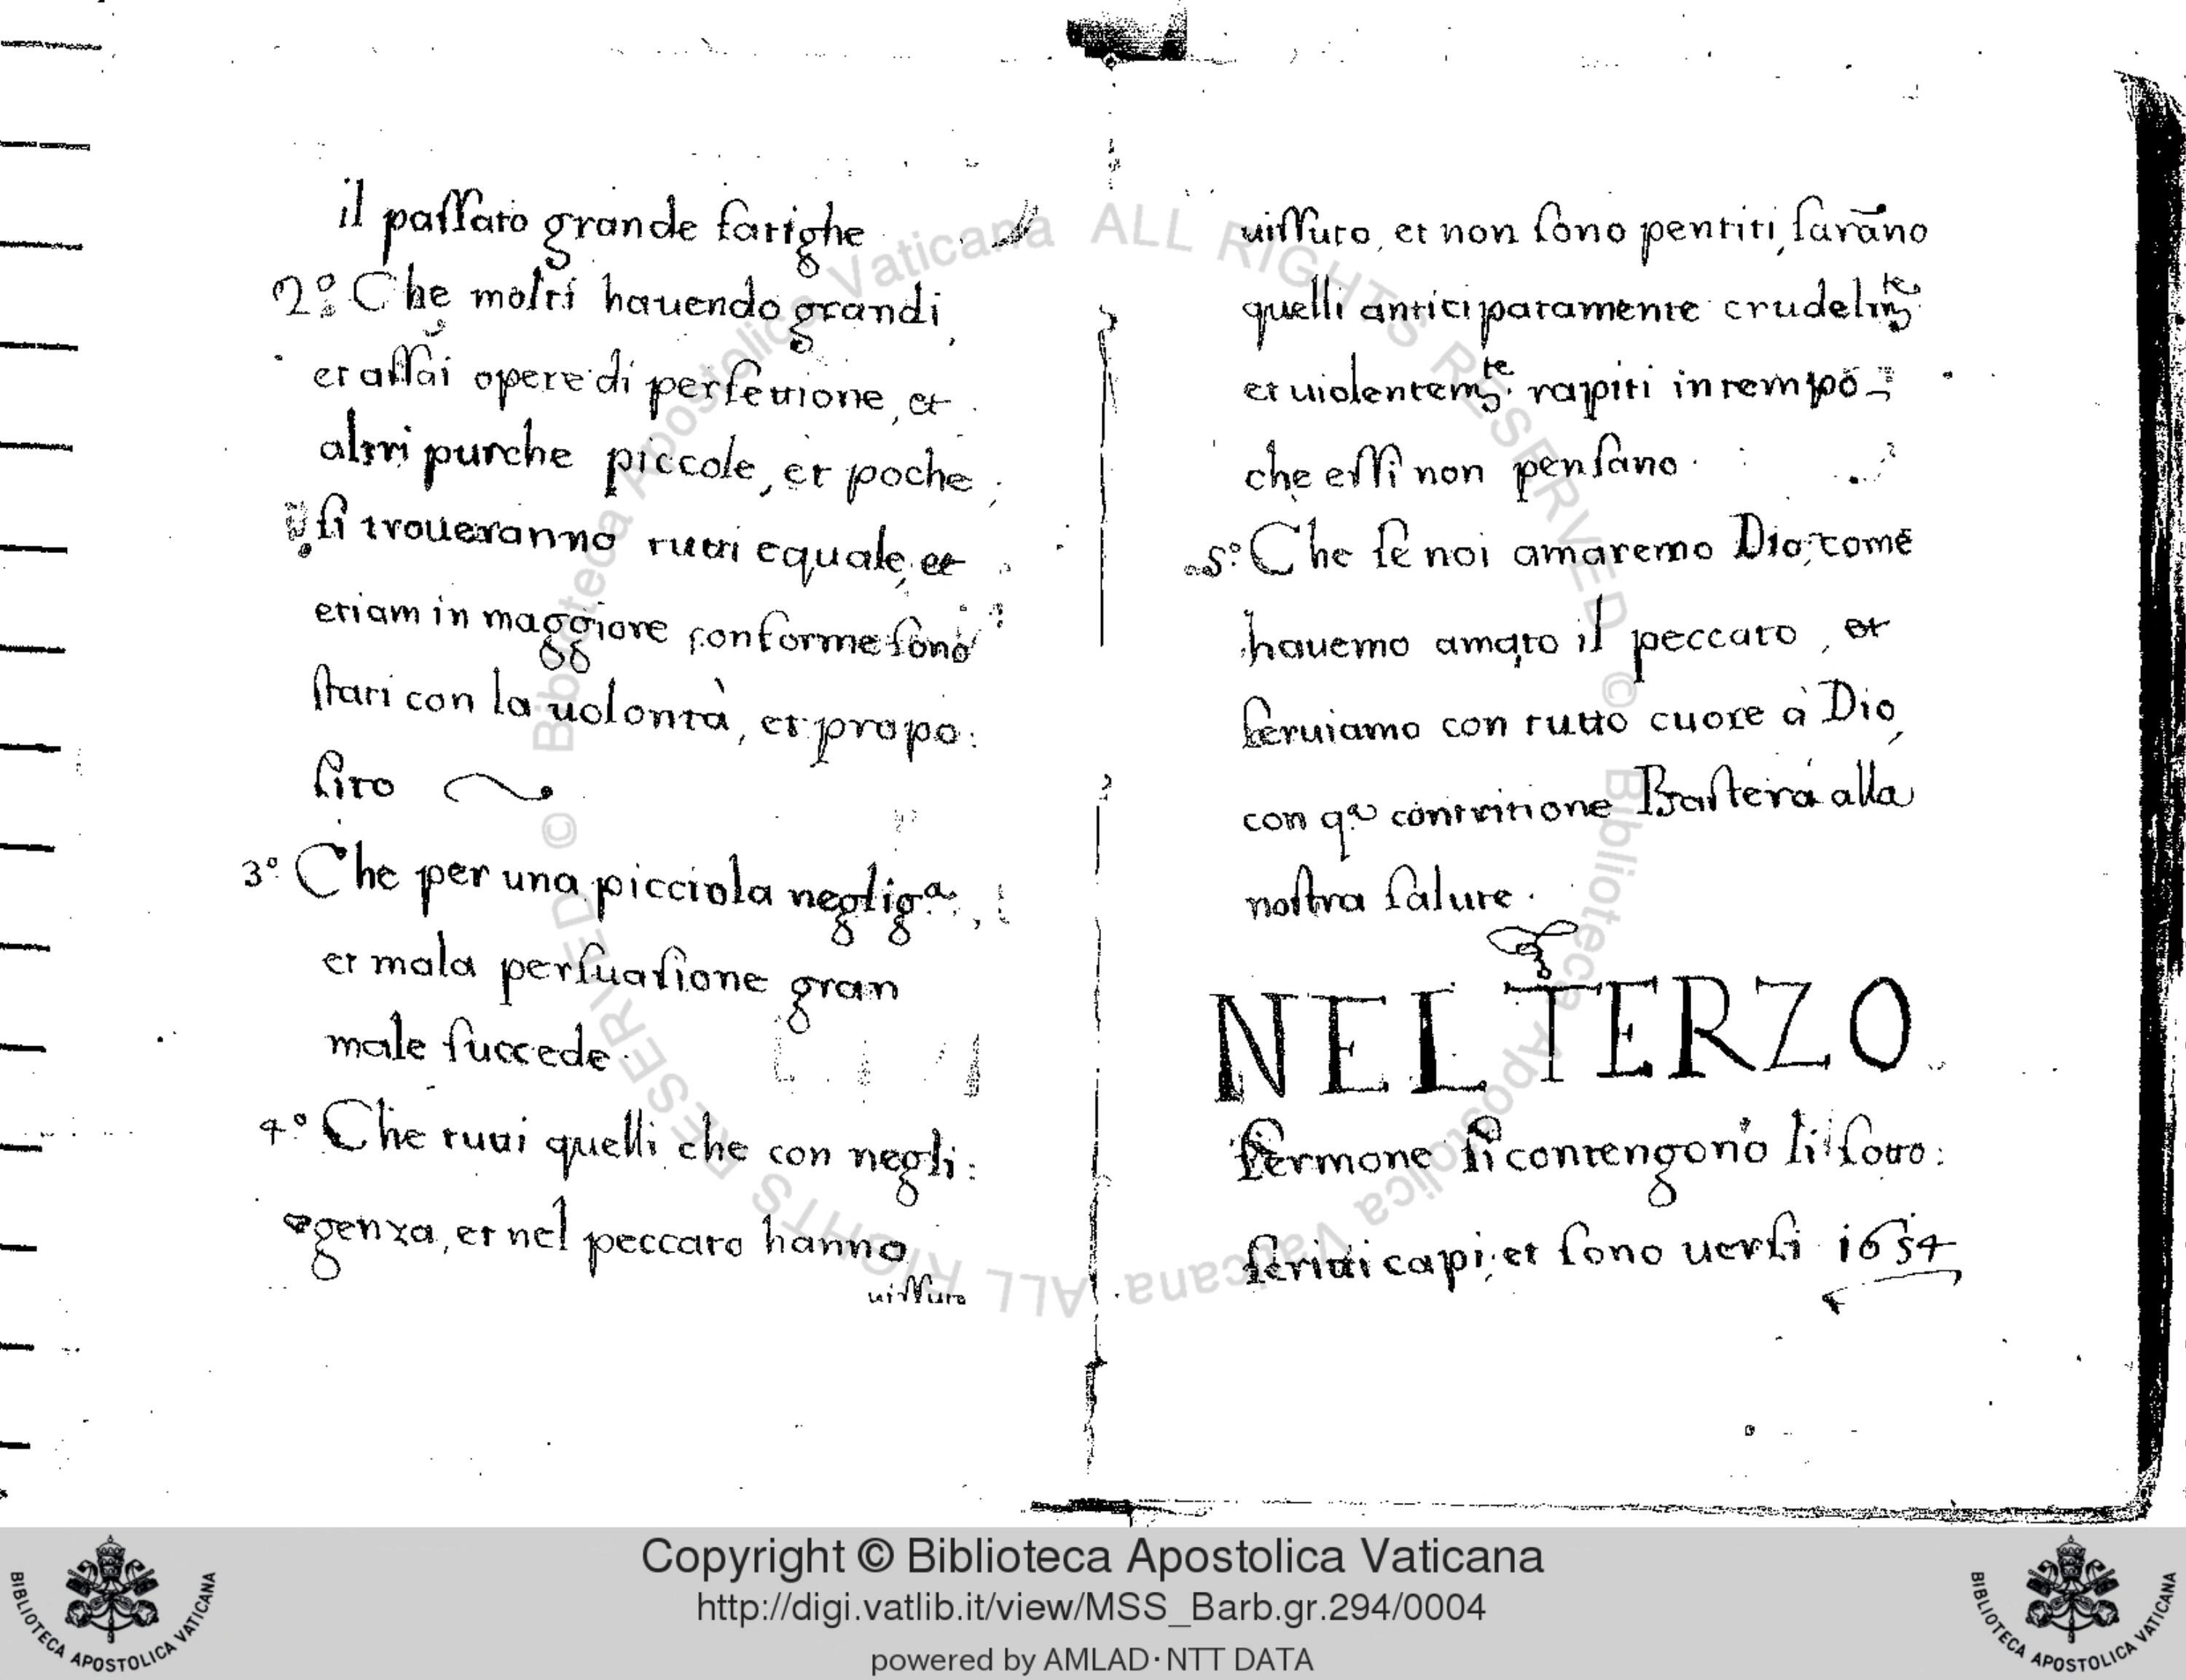 il passato grande fatighe
2º Che molti hauendo grandi,
et assai opere di perfettione, et
altri purche piccole, et poche,
si troueranno tutti equale, et
etiam in maggiore conforme sono
stati con la uolontà, et propo:
sito
3º Che per una picciola neglig.ª,
et mala persuasione gran
male succede.
4º Che tutti quelli che con negli:
genza, et nel peccato hanno
uissuto
uissuto, et non sono pentiti, sarãno
quelli anticipatamente crudelm.te
et uiolentem.te rapiti in tempo
che essi non pensano.
5º Che se noi amaremo Dio, come
hauemo amato il peccato, et
seruiamo con tutto cuore à Dio,
con q.ª contritione Basterà alla
nostra salute.
NEL TERZO
Sermone si contengono li sotto:
scritti capi, et sono uersi 1654
Copyright © Biblioteca Apostolica Vaticana
http://digi.vatlib.it/view/MSS_Barb.gr.294/0004
powered by AMLAD·NTT DATA
BIBLIOTECA APOSTOLICA VATICANA
BIBLIOTECA APOSTOLICA VATICANA
© Biblioteca Apostolica Vaticana ALL RIGHTS RESERVED © Biblioteca Apostolica Vaticana ALL RIGHTS RESERVED